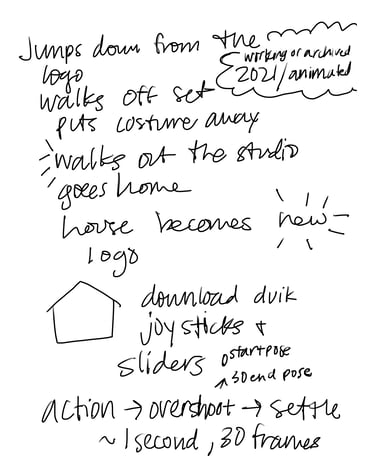 Jumps down from the
logo
working or archived
2021/animated
walks off set
puts costume away
walks out the studio
goes home
house becomes new
logo
download duik
joysticks +
sliders
0 start pose
30 end pose
action → overshoot → settle
~ 1 second, 30 frames